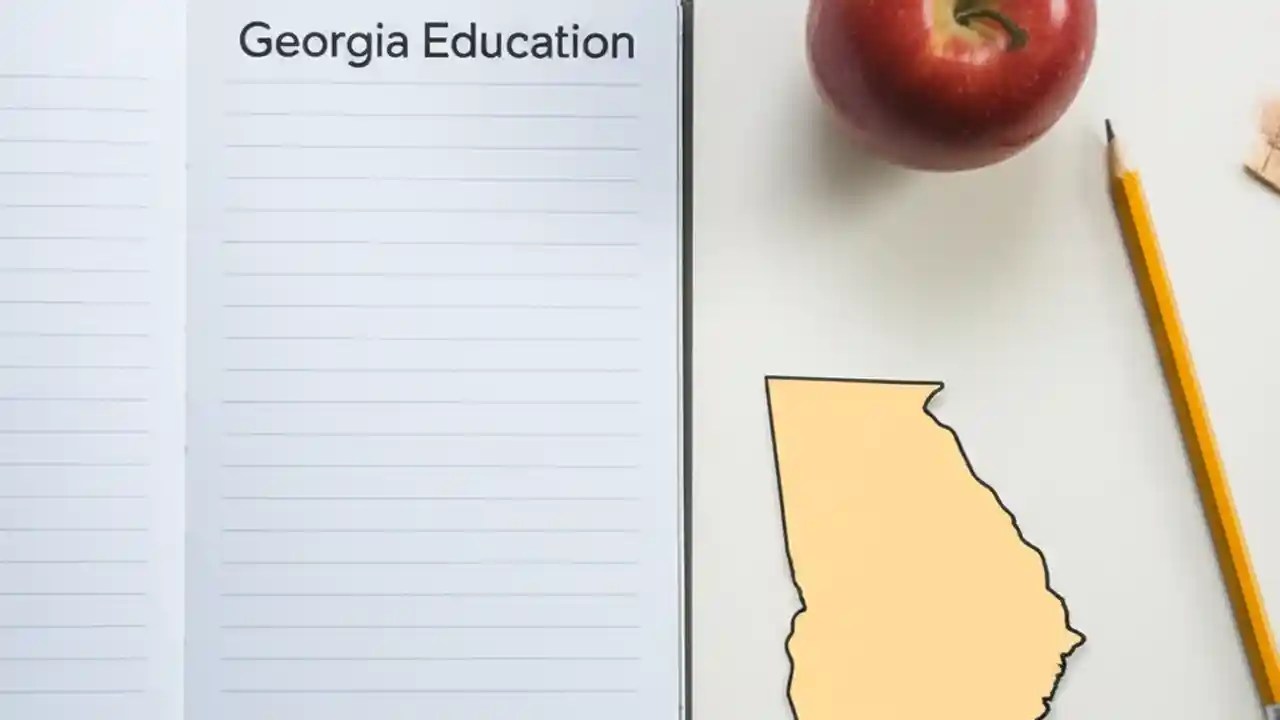 Georgia Education